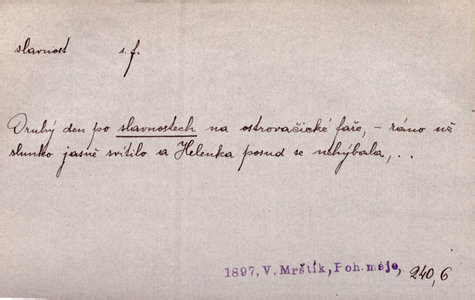 slavnost s. f.
Druhý den po slavnostech na ostrovačické faře, – ráno už
slunko jasně svítilo a Helenka posud se nehýbala, ..
1897, V. Mrštík, Poh. máje, 240,6